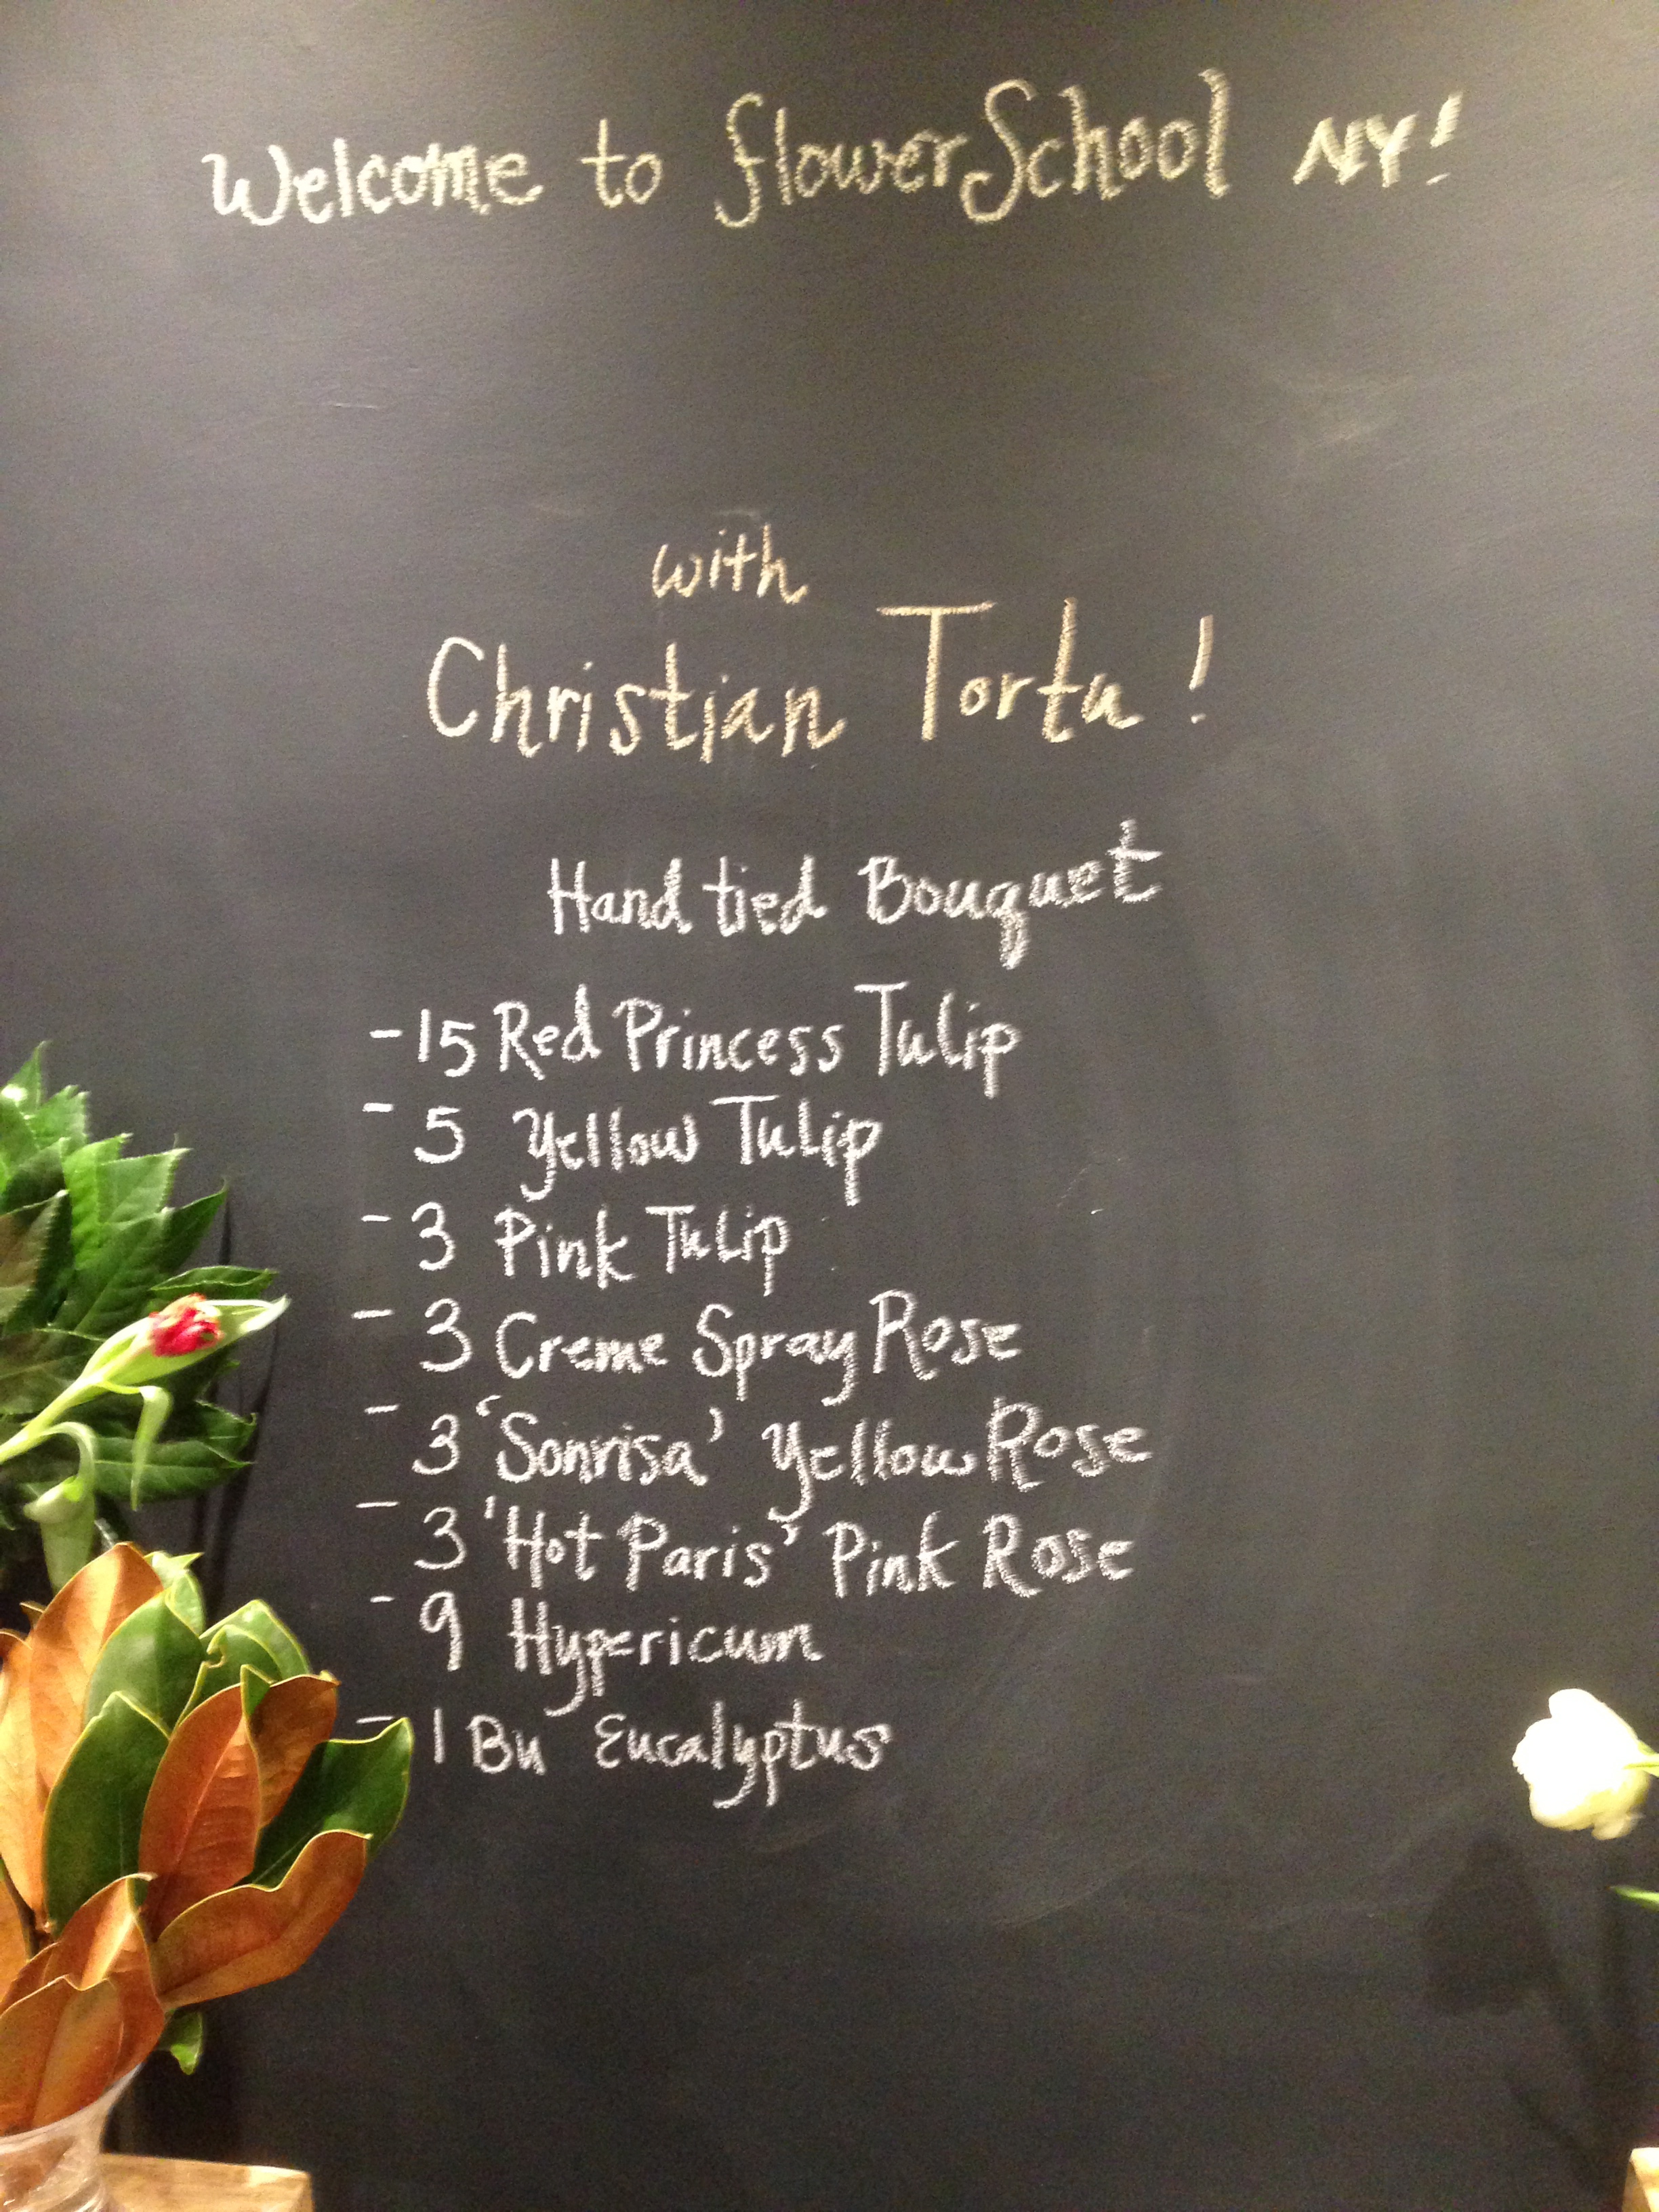 Welcome to flowerSchool NY!
with
Christian Tortu!
Hand tied Bouquet
- 15 Red Princess Tulip
- 5 Yellow Tulip
- 3 Pink Tulip
- 3 Creme Spray Rose
- 3 'Sonrisa' Yellow Rose
- 3 'Hot Paris' Pink Rose
- 9 Hypericum
- 1 Bu Eucalyptus